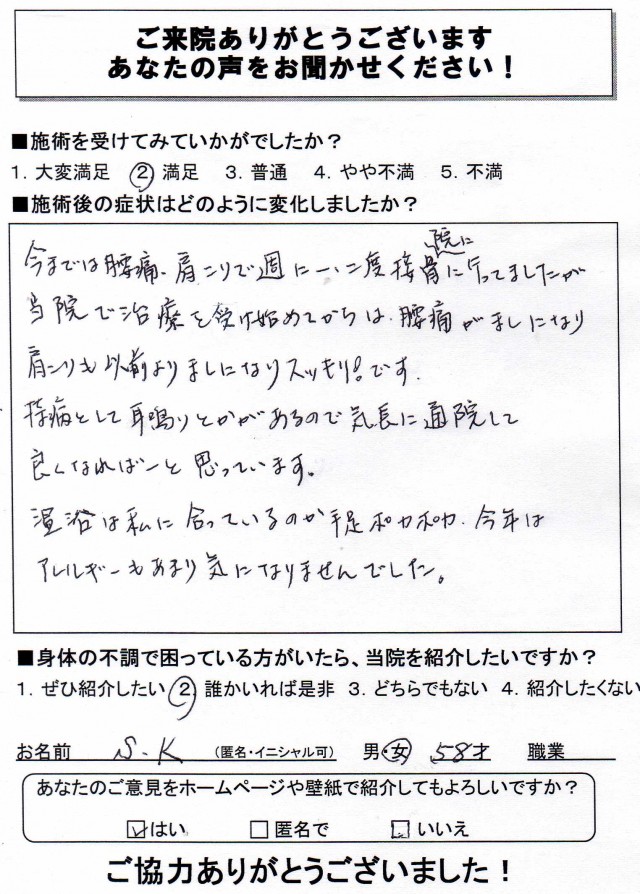 ご来院ありがとうございます
あなたの声をお聞かせください！
■施術を受けてみていかがでしたか？
1. 大変満足 ② 満足 3. 普通 4. やや不満 5. 不満
■施術後の症状はどのように変化しましたか？
院に
今までは腰痛、肩こりで週に一、二度接骨に行ってましたが
当院で治療を受け始めてからは、腰痛がましになり
肩こりも以前よりましになりスッキリ！です。
持病として耳鳴りとかがあるので気長に通院して
良くなればーと思っています。
温浴は私に合っているのか手足ポカポカ、今年は
アレルギーもあまり気になりませんでした。
■身体の不調で困っている方がいたら、当院を紹介したいですか？
1. ぜひ紹介したい ② 誰かいれば是非 3. どちらでもない 4. 紹介したくない
お名前 S.K （匿名・イニシャル可） 男・女 58才 職業
あなたのご意見をホームページや壁紙で紹介してもよろしいですか？
☑はい □匿名で □いいえ
ご協力ありがとうございました！